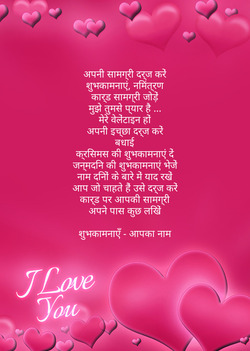 अपनी सामग्री दर्ज करे
शुभकामनाएं, निमंत्रण
कार्ड सामग्री जोड़ें
मुझे तुमसे प्यार है ...
मेरे वेलेंटाइन हो
अपनी इच्छा दर्ज करें
बधाई
क्रिसमस की शुभकामनाएं दें
जन्मदिन की शुभकामनाएं भेजें
नाम दिनों के बारे में याद रखें
आप जो चाहते हैं उसे दर्ज करें
कार्ड पर आपकी सामग्री
अपने पास कुछ लिखें
शुभकामनाएँ - आपका नाम
I Love
You